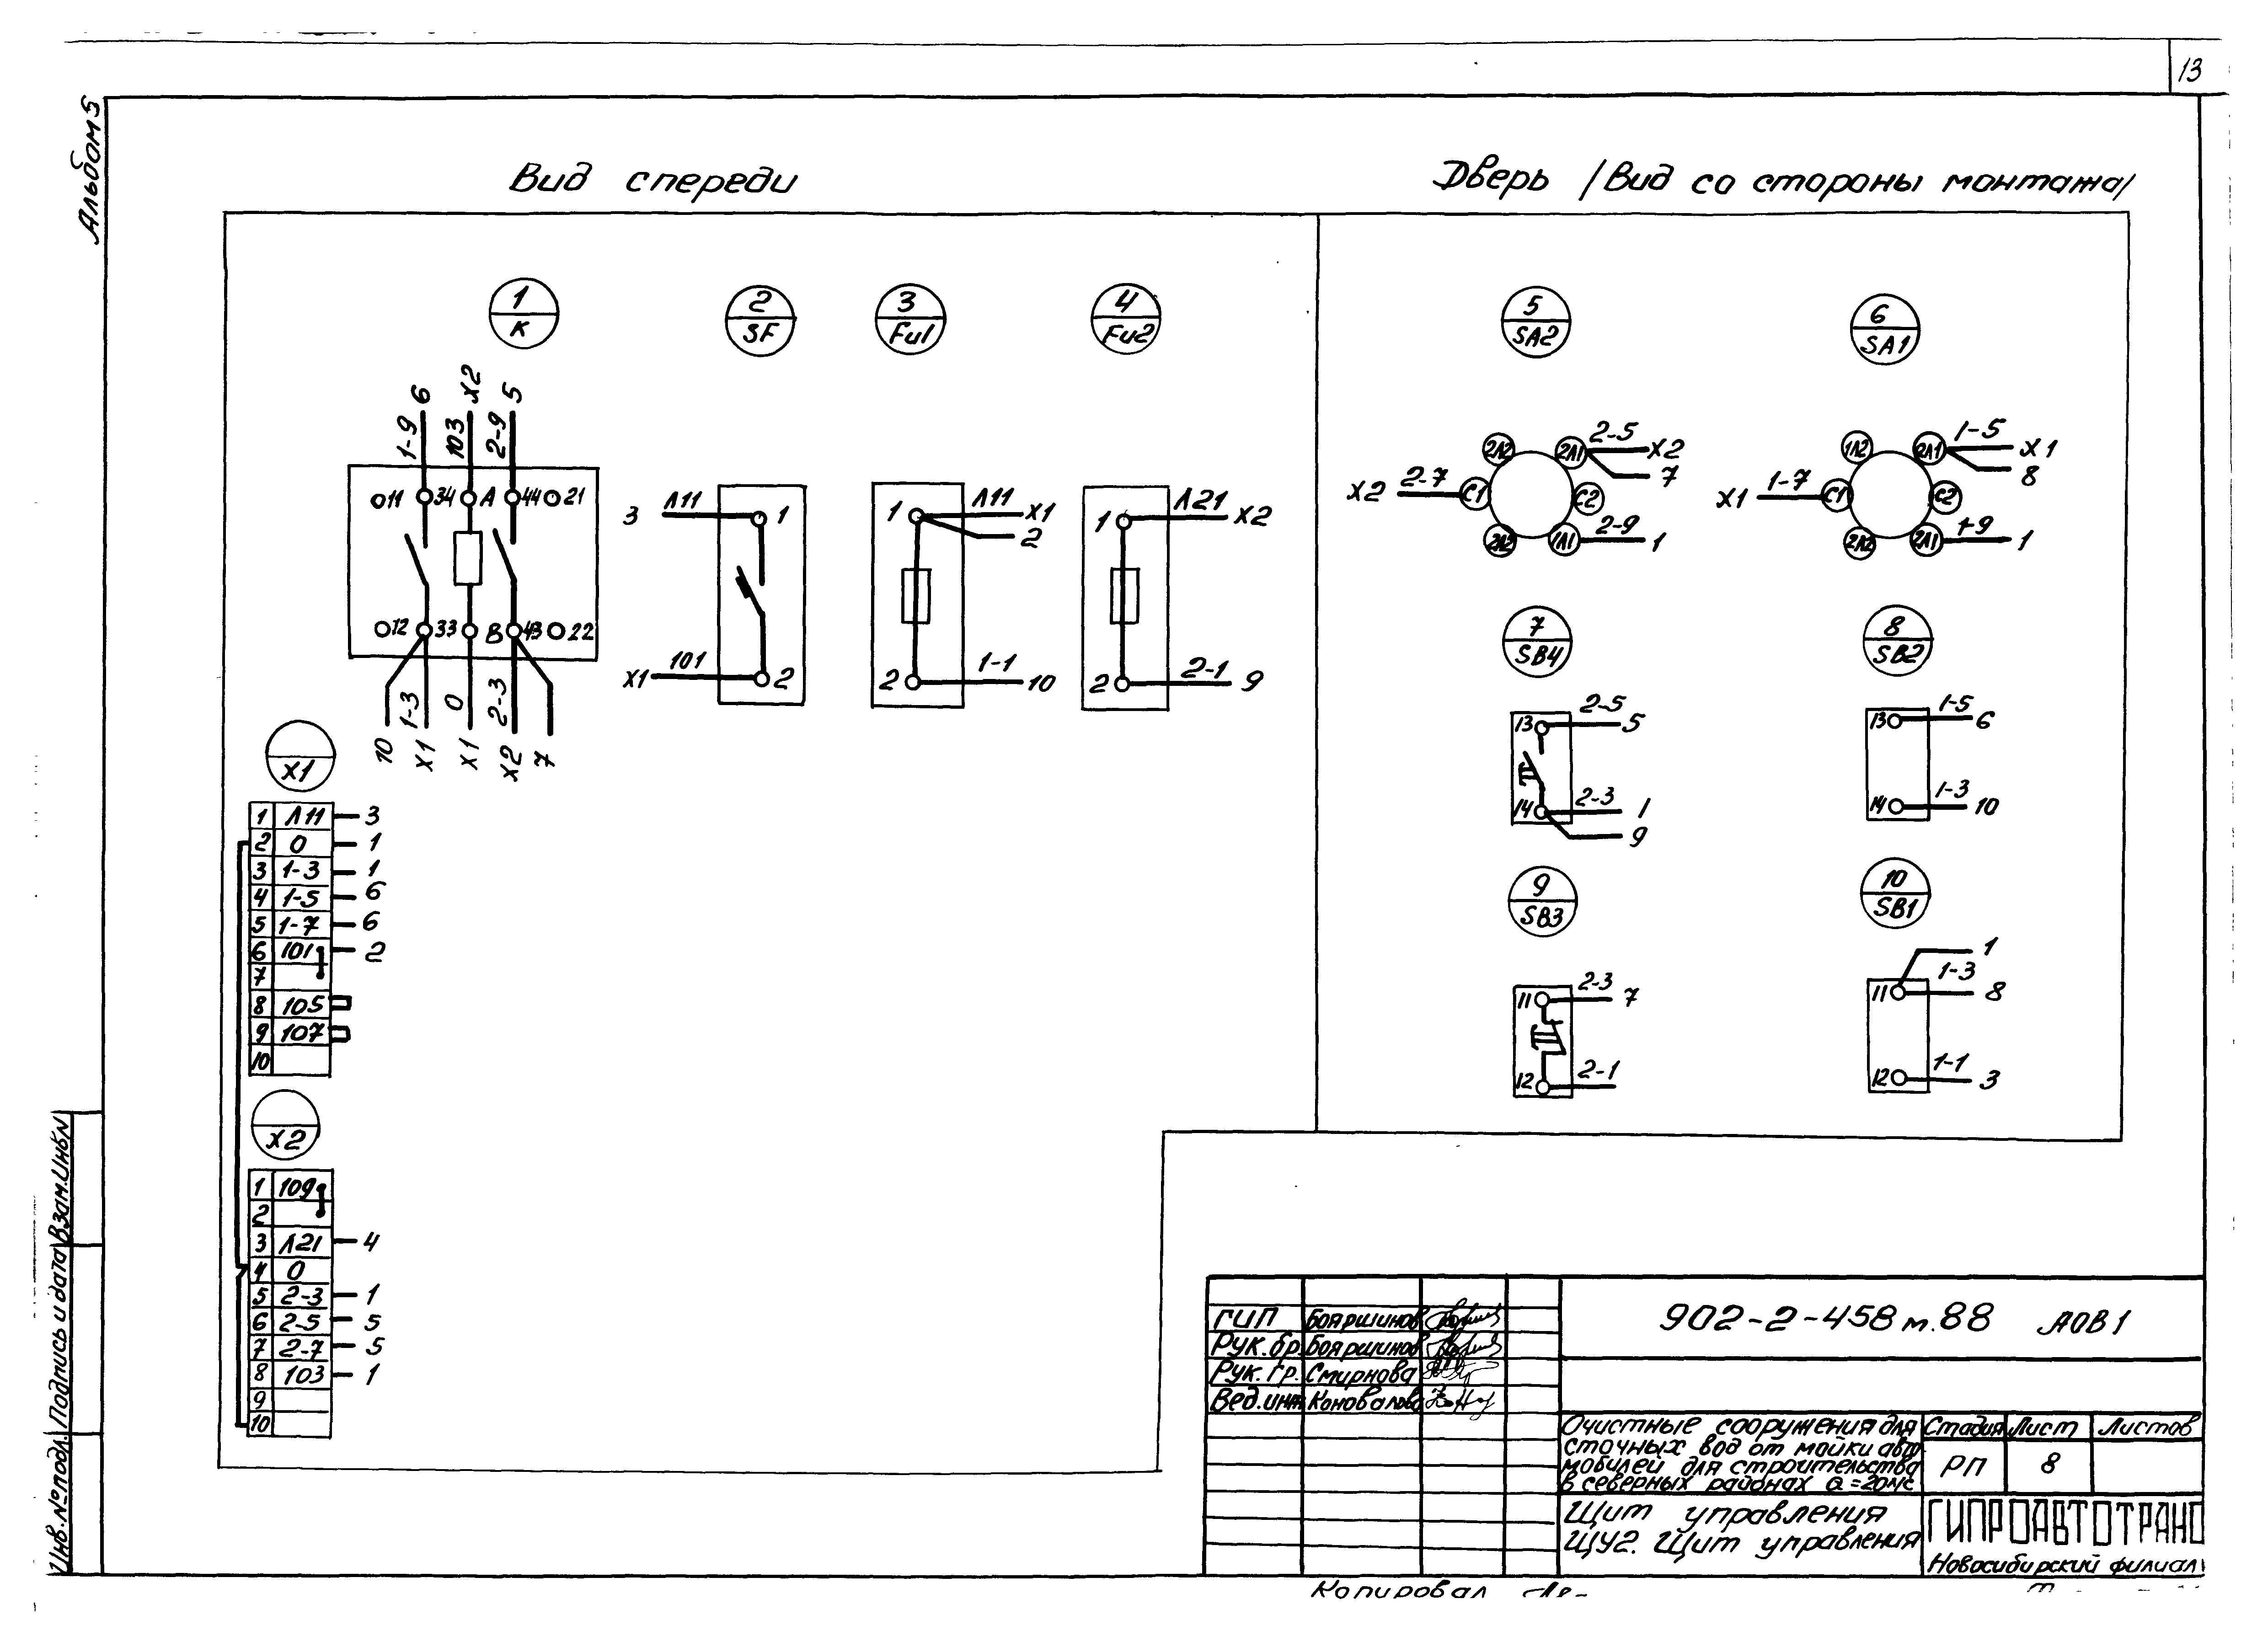 13
Альбом 5
Вид спереди
Дверь /Вид со стороны монтажа/
1
К
2
SF
3
Fu1
4
Fu2
5
SA2
6
SA1
6
X2
5
1-9
103
2-9
11 34 А 44 21
12 33 В 43 22
1-3
0
2-3
10
X1
X1
X2
7
3 Л11 1
X1 101 2
1 Л11 X1
2
2 1-1 10
1 Л21 X2
2 2-1 9
2Л2 2Л1 2-5 X2
7
X2 2-7 С1 С2
2Л2 1Л1 2-9 1
1Л2 2Л1 1-5 X1
8
X1 1-7 С1 С2
2Л2 2Л1 1-9 1
7
SB4
8
SB2
13 2-5 5
14 2-3 1
9
13 1-5 6
14 1-3 10
9
SB3
10
SB1
11 2-3 7
12 2-1
1
11 1-3 8
12 1-1 3
X1
1 Л11 3
2 0 1
3 1-3 1
4 1-5 6
5 1-7 6
6 101 2
7
8 105
9 107
10
X2
1 109
2
3 Л21 4
4 0
5 2-3 1
6 2-5 5
7 2-7 5
8 103 1
9
10
Инв.№подл. Подпись и дата Взам.Инв№
902-2-458м.88 АОВ1
ГИП Бояршинов
Рук.бр. Бояршинов
Рук.гр. Смирнова
Вед.инж Коновалова
Очистные сооружения для
сточных вод от мойки авто
мобилей для строительства
в северных районах Q=20л/с
Стадия Лист Листов
РП 8
Щит управления
ЩУ2. Щит управления
ГИПРОАВТОТРАНС
Новосибирский филиал
Копировал